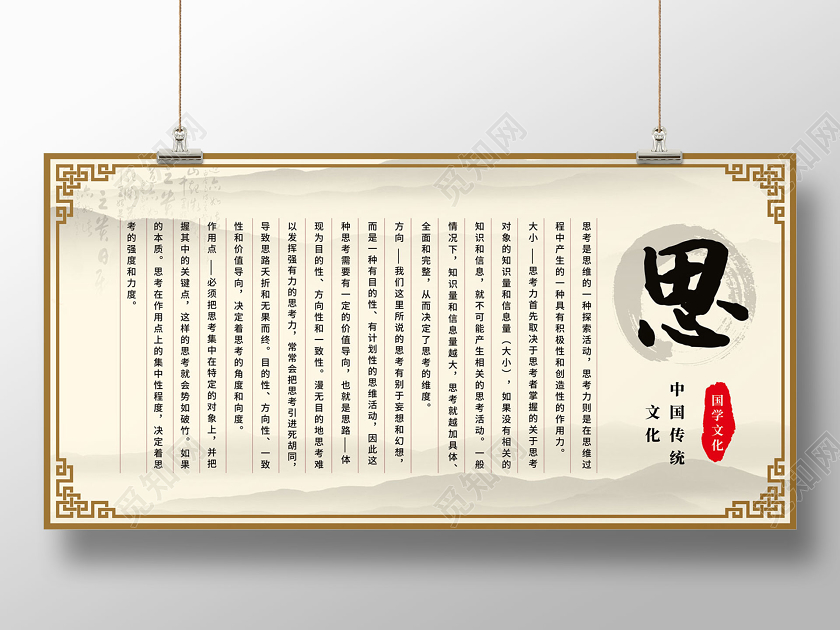 思
国学文化
中国传统
文化
思考是思维的一种探索活动，思考力则是在思维过
程中产生的一种具有积极性和创造性的作用力。
大小——思考力首先取决于思考者掌握的关于思考
对象的知识量和信息量（大小），如果没有相关的
知识和信息，就不可能产生相关的思考活动。一般
情况下，知识量和信息量越大，思考就越加具体、
全面和完整，从而决定了思考的维度。
方向——我们这里所说的思考有别于妄想和幻想，
而是一种有目的性、有计划性的思维活动，因此这
种思考需要有一定的价值导向，也就是思路—体
现为目的性、方向性和一致性。漫无目的地思考难
以发挥强有力的思考力，常常会把思考引进死胡同，
导致思路夭折和无果而终。目的性、方向性、一致
性和价值导向，决定着思考的角度和向度。
作用点——必须把思考集中在特定的对象上，并把
握其中的关键点，这样的思考就会势如破竹。如果
的本质。思考在作用点上的集中性程度，决定着思
考的强度和力度。
觅知网